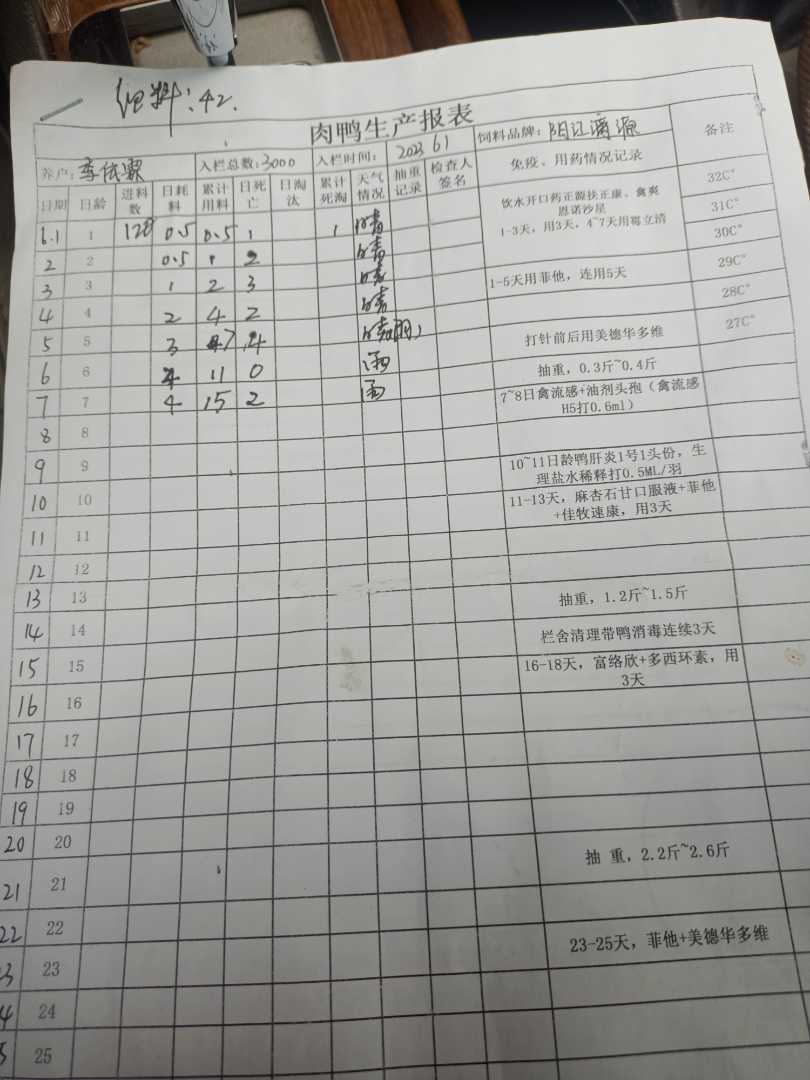 料:42.
肉鸭生产报表
养户: 李依霖 入栏总数:3000 入栏时间: 2023 6 1 饲料品牌: 阳江漓源 备注
日期 日龄 进料数 日耗料 累计用料 日死亡 日淘汰 累计死淘 天气情况 抽重记录 检查人签名 免疫、用药情况记录
6.1 1 128 0.5 0.5 1 1 晴 饮水开口药正源扶正康、禽爽恩诺沙星 32C°
1-3天，用3天，4~7天用霉立清 31C°
2 2 0.5 1 2 晴 30C°
3 3 1 2 3 晴 1-5天用菲他，连用5天 29C°
4 4 2 4 2 晴 28C°
5 5 3 7 4 晴(雨) 打针前后用美德华多维 27C°
6 6 4 11 0 雨 抽重，0.3斤~0.4斤
7 7 4 15 2 雨 7~8日禽流感+油剂头孢（禽流感H5打0.6ml）
8 8
9 9 10~11日龄鸭肝炎1号1头份，生理盐水稀释打0.5ML/羽
10 10 11-13天，麻杏石甘口服液+菲他+佳牧速康，用3天
11 11
12 12
13 13 抽重，1.2斤~1.5斤
14 14 栏舍清理带鸭消毒连续3天
15 15 16-18天，富络欣+多西环素，用3天
16 16
17 17
18 18
19 19
20 20
21 21 抽 重，2.2斤~2.6斤
22 22
3 23 23-25天，菲他+美德华多维
4 24
5 25